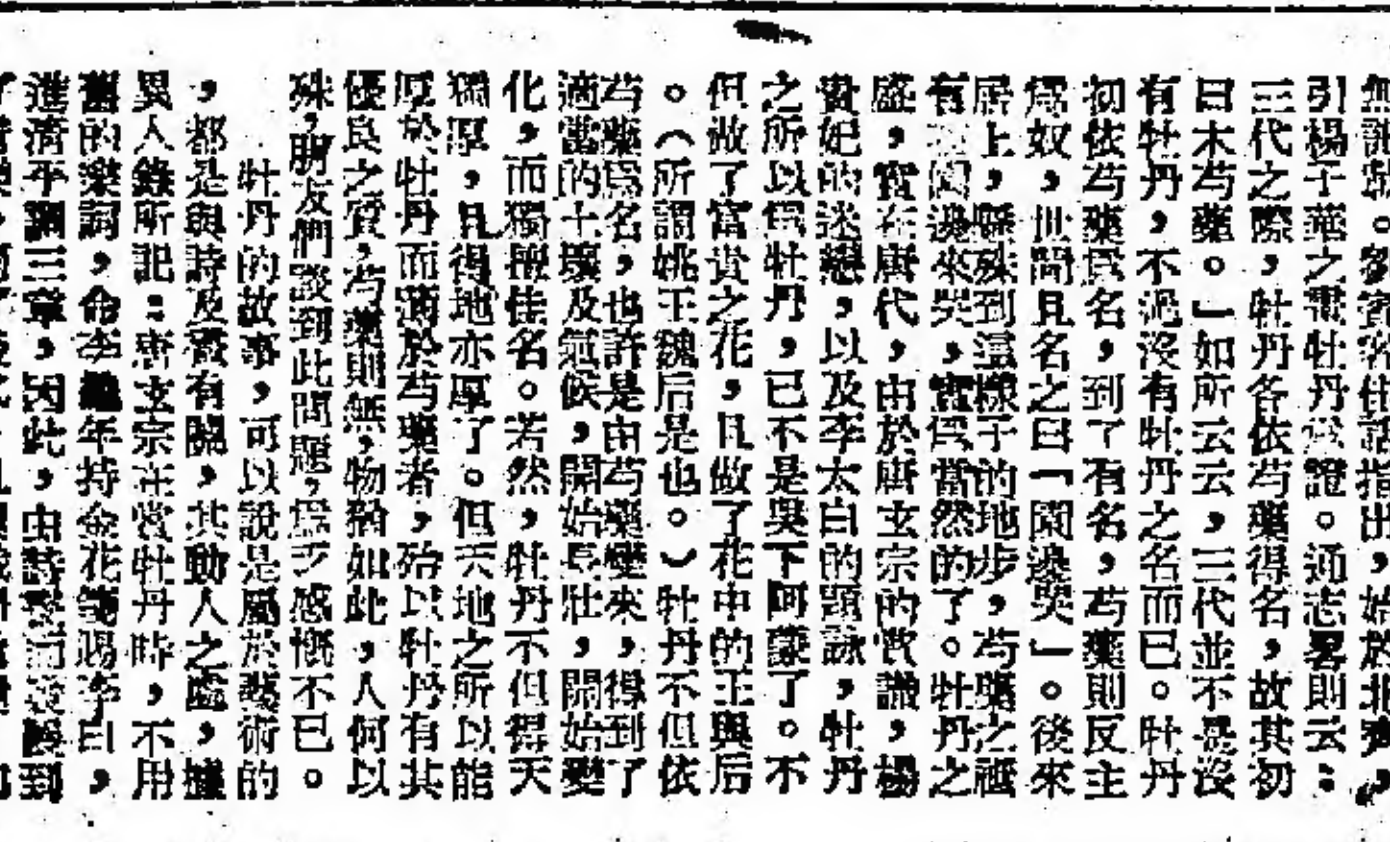 無訛歟。劉賓客佳話指出,始於北齊,
引楊子華之畫牡丹為證。通志畧則云:
三代之際,牡丹各依芍藥得名,故其初
曰木芍藥。」如所云云,三代並不是沒
有牡丹,不過沒有牡丹之名而已。牡丹
初依芍藥為名,到了有名,芍藥則反主
為奴,世間且名之曰「闌邊哭」。後來
居上,懸殊到這樣子的地步,芍藥之祗
有闌邊來哭,實為當然的了。牡丹之
盛,實在唐代,由於唐玄宗的賞識,楊
貴妃的迷戀,以及李太白的題詠,牡丹
之所以為牡丹,已不是吳下阿蒙了。不
但做了富貴之花,且做了花中的王與后
。(所謂姚王魏后是也。)牡丹不但依
芍藥為名,也許是由芍藥變來,得到了
適當的土壤及氣候,開始長壯,開始變
化,而獨擅佳名。若然,牡丹不但得天
獨厚,且得地亦厚了。但天地之所以能
厚於牡丹而薄於芍藥者,殆以牡丹有其
優良之質,芍藥則無,物猶如此,人何以
殊,朋友們談到此問題,為之感慨不已。
牡丹的故事,可以說是屬於藝術的
,都是與詩及畫有關,其動人之處,據
異人錄所記:唐玄宗在賞牡丹時,不用
舊的樂詞,命李龜年持金花箋賜李白,
進清平調三章,因此,由詩